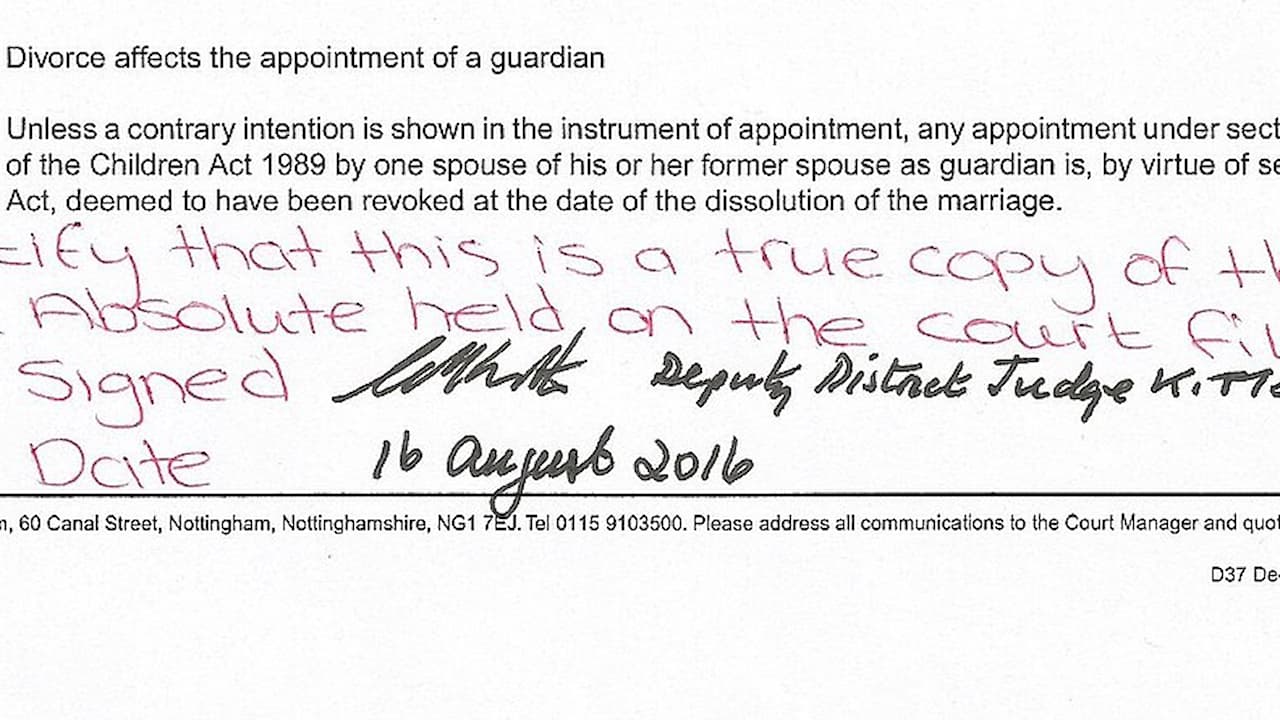 Divorce affects the appointment of a guardian
Unless a contrary intention is shown in the instrument of appointment, any appointment under sect
of the Children Act 1989 by one spouse of his or her former spouse as guardian is, by virtue of se
Act, deemed to have been revoked at the date of the dissolution of the marriage.
tify that this is a true copy of th
Absolute held on the court fil
Signed Deputy District Judge K.
Date 16 August 2016
n, 60 Canal Street, Nottingham, Nottinghamshire, NG1 7EJ. Tel 0115 9103500. Please address all communications to the Court Manager and quot
D37 De